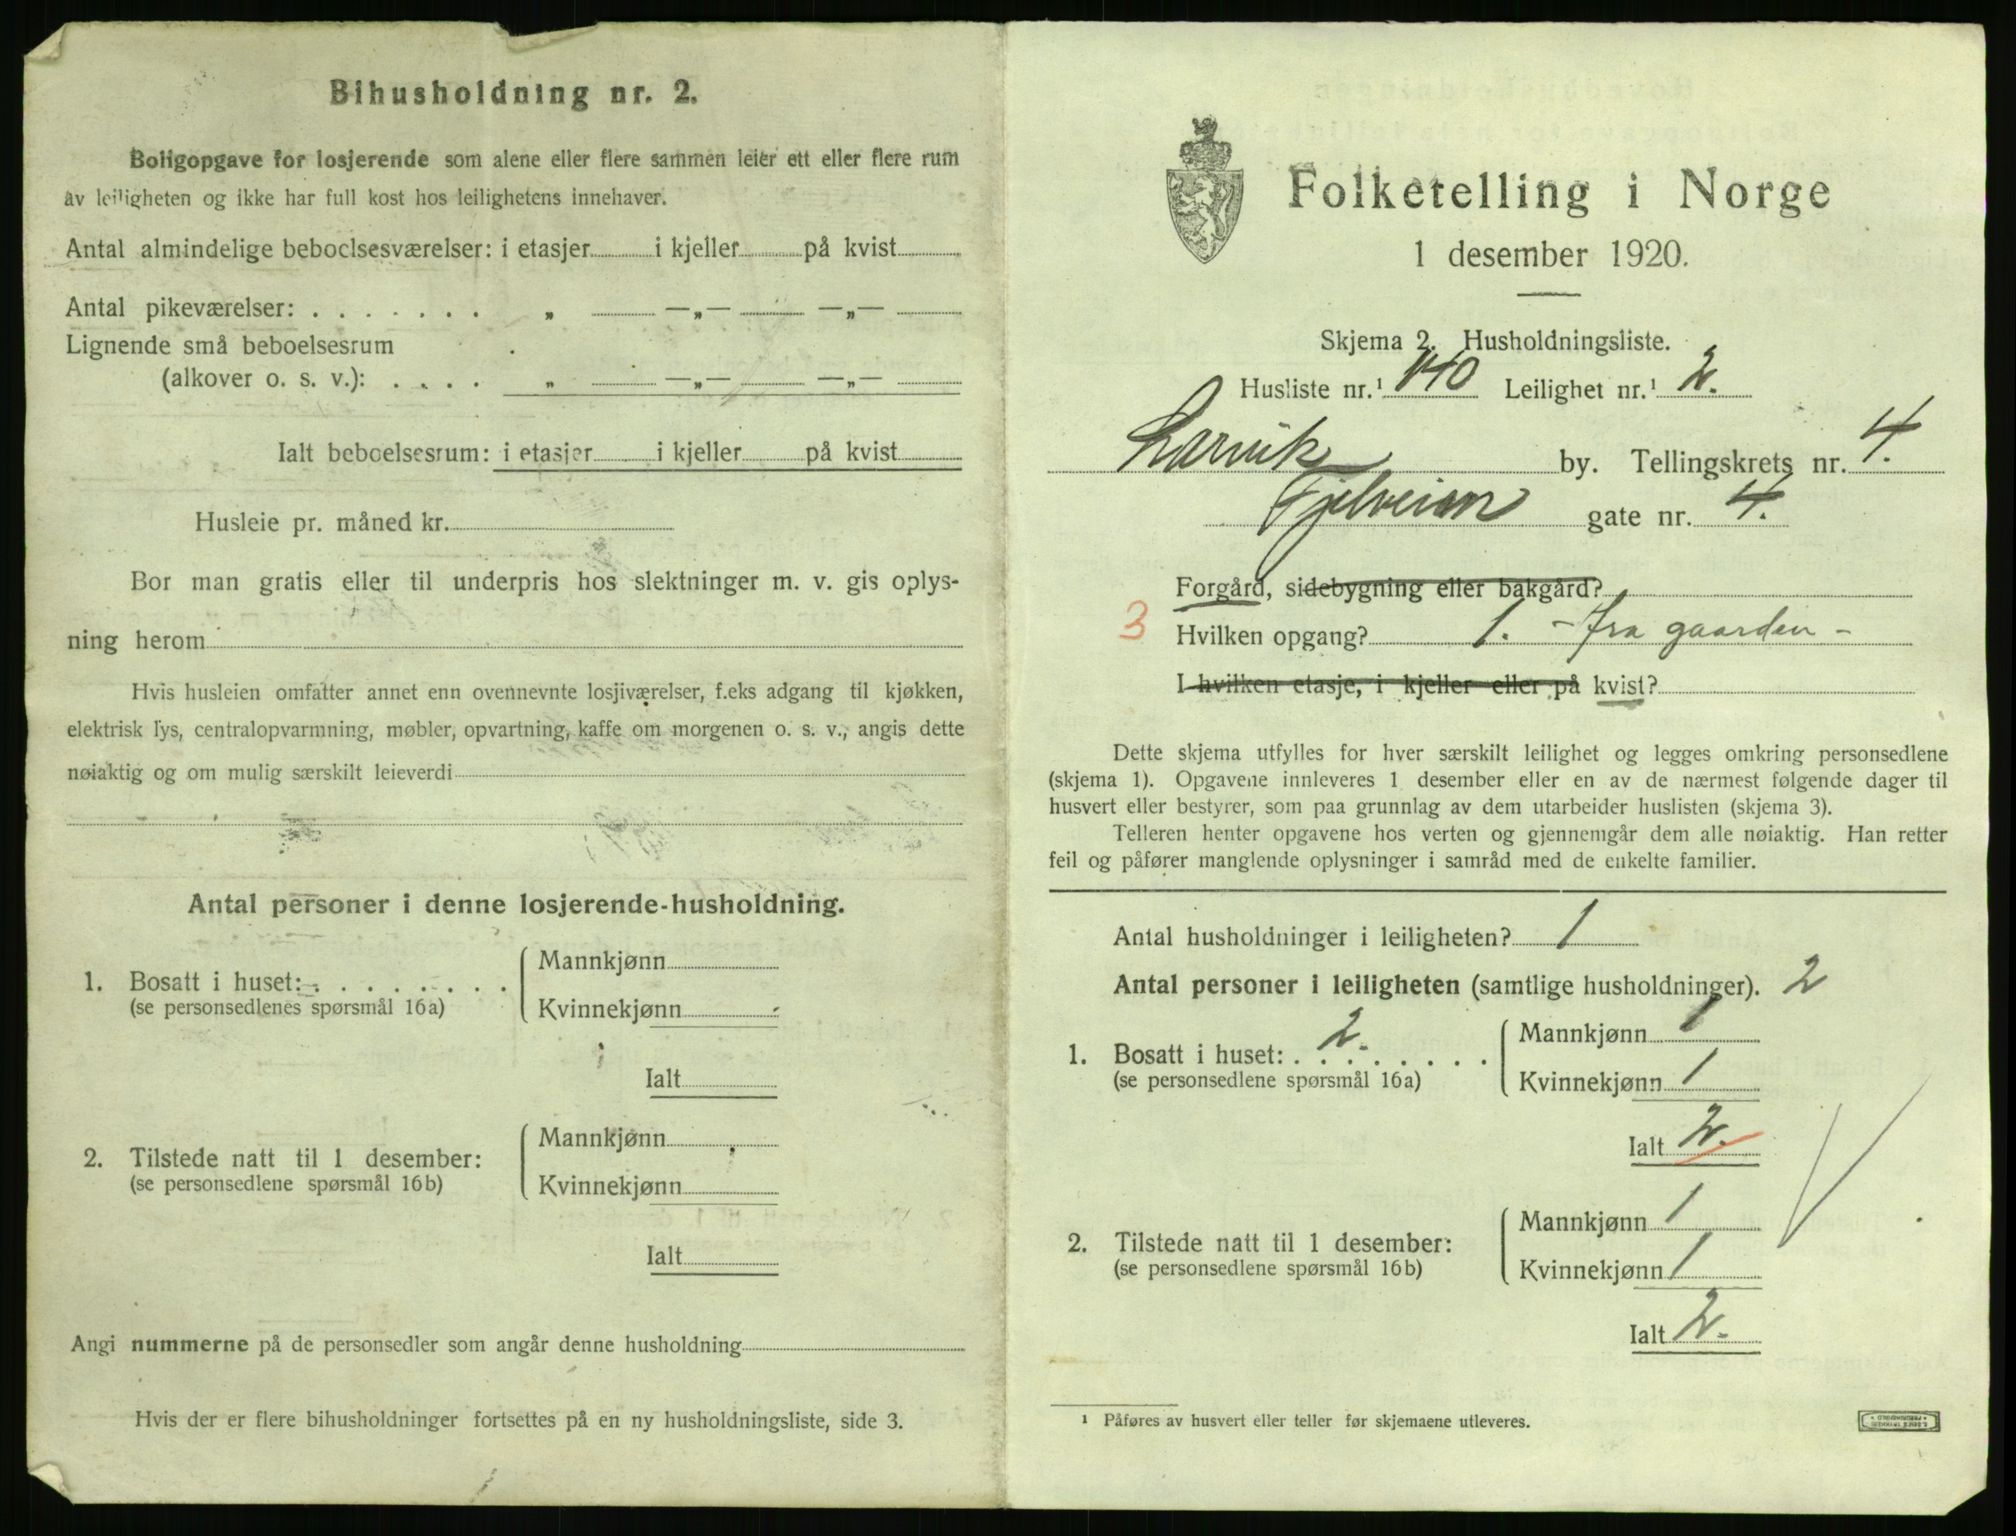 Bihusholdning nr. 2.
Boligopgave for losjerende som alene eller flere sammen leier ett eller flere rum
av leiligheten og ikke har full kost hos leilighetens innehaver.
Antal almindelige beboelsesværelser: i etasjer i kjeller på kvist
Antal pikeværelser: . . . . . . . „ —„— —„—
Lignende små beboelsesrum
(alkover o. s. v.): . . . . „ —„— —„—
Ialt beboelsesrum: i etasjer i kjeller på kvist
Husleie pr. måned kr.
Bor man gratis eller til underpris hos slektninger m. v. gis oplys-
ning herom
Hvis husleien omfatter annet enn ovennevnte losjiværelser, f.eks adgang til kjøkken,
elektrisk lys, centralopvarmning, møbler, opvartning, kaffe om morgenen o. s. v., angis dette
nøiaktig og om mulig særskilt leieverdi
Antal personer i denne losjerende-husholdning.
1. Bosatt i huset: . . . . . . . .
(se personsedlenes spørsmål 16a)
Mannkjønn
Kvinnekjønn
Ialt
2. Tilstede natt til 1 desember:
(se personsedlene spørsmål 16b)
Mannkjønn
Kvinnekjønn
Ialt
Angi nummerne på de personsedler som angår denne husholdning
Hvis der er flere bihusholdninger fortsettes på en ny husholdningsliste, side 3.
Folketelling i Norge
1 desember 1920.
Skjema 2. Husholdningsliste.
Husliste nr.¹ 140 Leilighet nr.¹ 2.
Larvik by. Tellingskrets nr. 4.
Fjelveien gate nr. 4.
Forgård, sidebygning eller bakgård?
3 Hvilken opgang? 1. - fra gaarden -
I hvilken etasje, i kjeller eller på kvist?
Dette skjema utfylles for hver særskilt leilighet og legges omkring personsedlene
(skjema 1). Opgavene innleveres 1 desember eller en av de nærmest følgende dager til
husvert eller bestyrer, som paa grunnlag av dem utarbeider huslisten (skjema 3).
Telleren henter opgavene hos verten og gjennemgår dem alle nøiaktig. Han retter
feil og påfører manglende oplysninger i samråd med de enkelte familier.
Antal husholdninger i leiligheten? 1
Antal personer i leiligheten (samtlige husholdninger). 2
1. Bosatt i huset: . . . . . . . . 2.
(se personsedlene spørsmål 16a)
Mannkjønn 1
Kvinnekjønn 1
Ialt 2.
2. Tilstede natt til 1 desember:
(se personsedlene spørsmål 16b)
Mannkjønn 1
Kvinnekjønn 1
Ialt 2.
¹ Påføres av husvert eller teller før skjemaene utleveres.